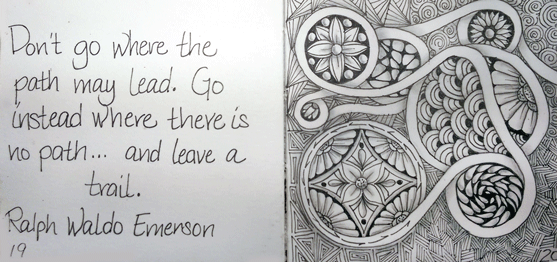 Don't go where the
path may lead. Go
instead where there is
no path... and leave a
trail.
Ralph Waldo Emerson
19